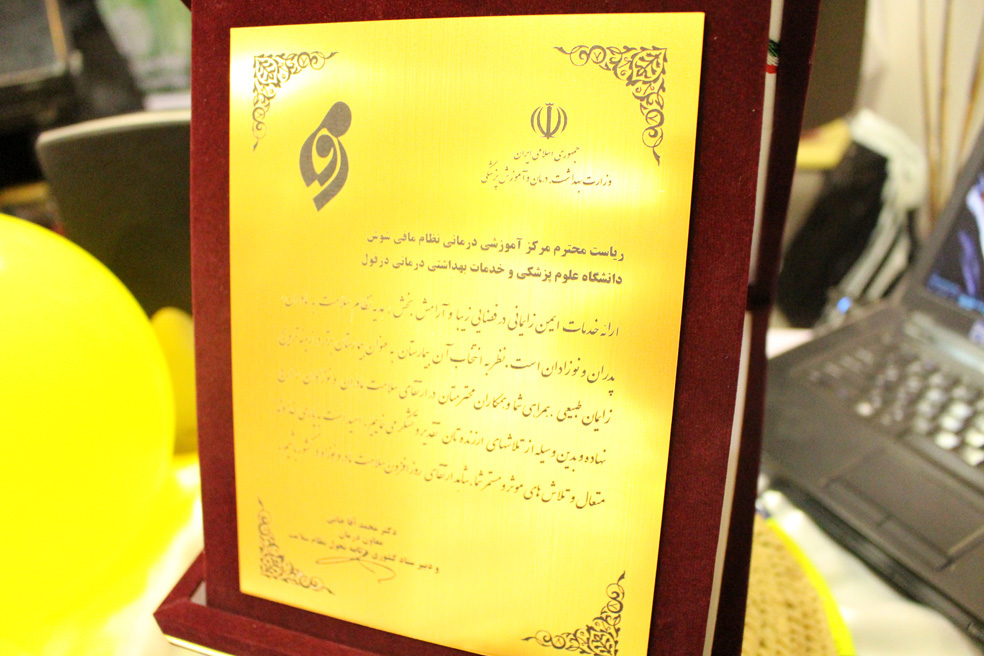 جمهوری اسلامی ایران
وزارت بهداشت، درمان و آموزش پزشکی
ریاست محترم مرکز آموزشی درمانی نظام مافی شوش
دانشگاه علوم پزشکی و خدمات بهداشتی درمانی دزفول
ارائه خدمات ایمن زایمانی در فضایی زیبا و آرامش بخش، هدیه نظام سلامت به مادران،
پدران و نوزادان است. نظر به انتخاب آن بیمارستان به عنوان بیمارستان
زایمان طبیعی، همراهی شما و همکاران محترمتان در ارتقای سلامت مادران و نوزادان
نهاده و بدین وسیله از تلاشهای ارزنده تان تقدیر و تشکر می نمایم،
متعال و تلاش های موثر و مستمر شما، شاهد ارتقای روز افزون سلامت
دکتر محمد آقاجانی
معاون درمان
و دبیر ستاد کشوری برنامه تحول نظام سلامت